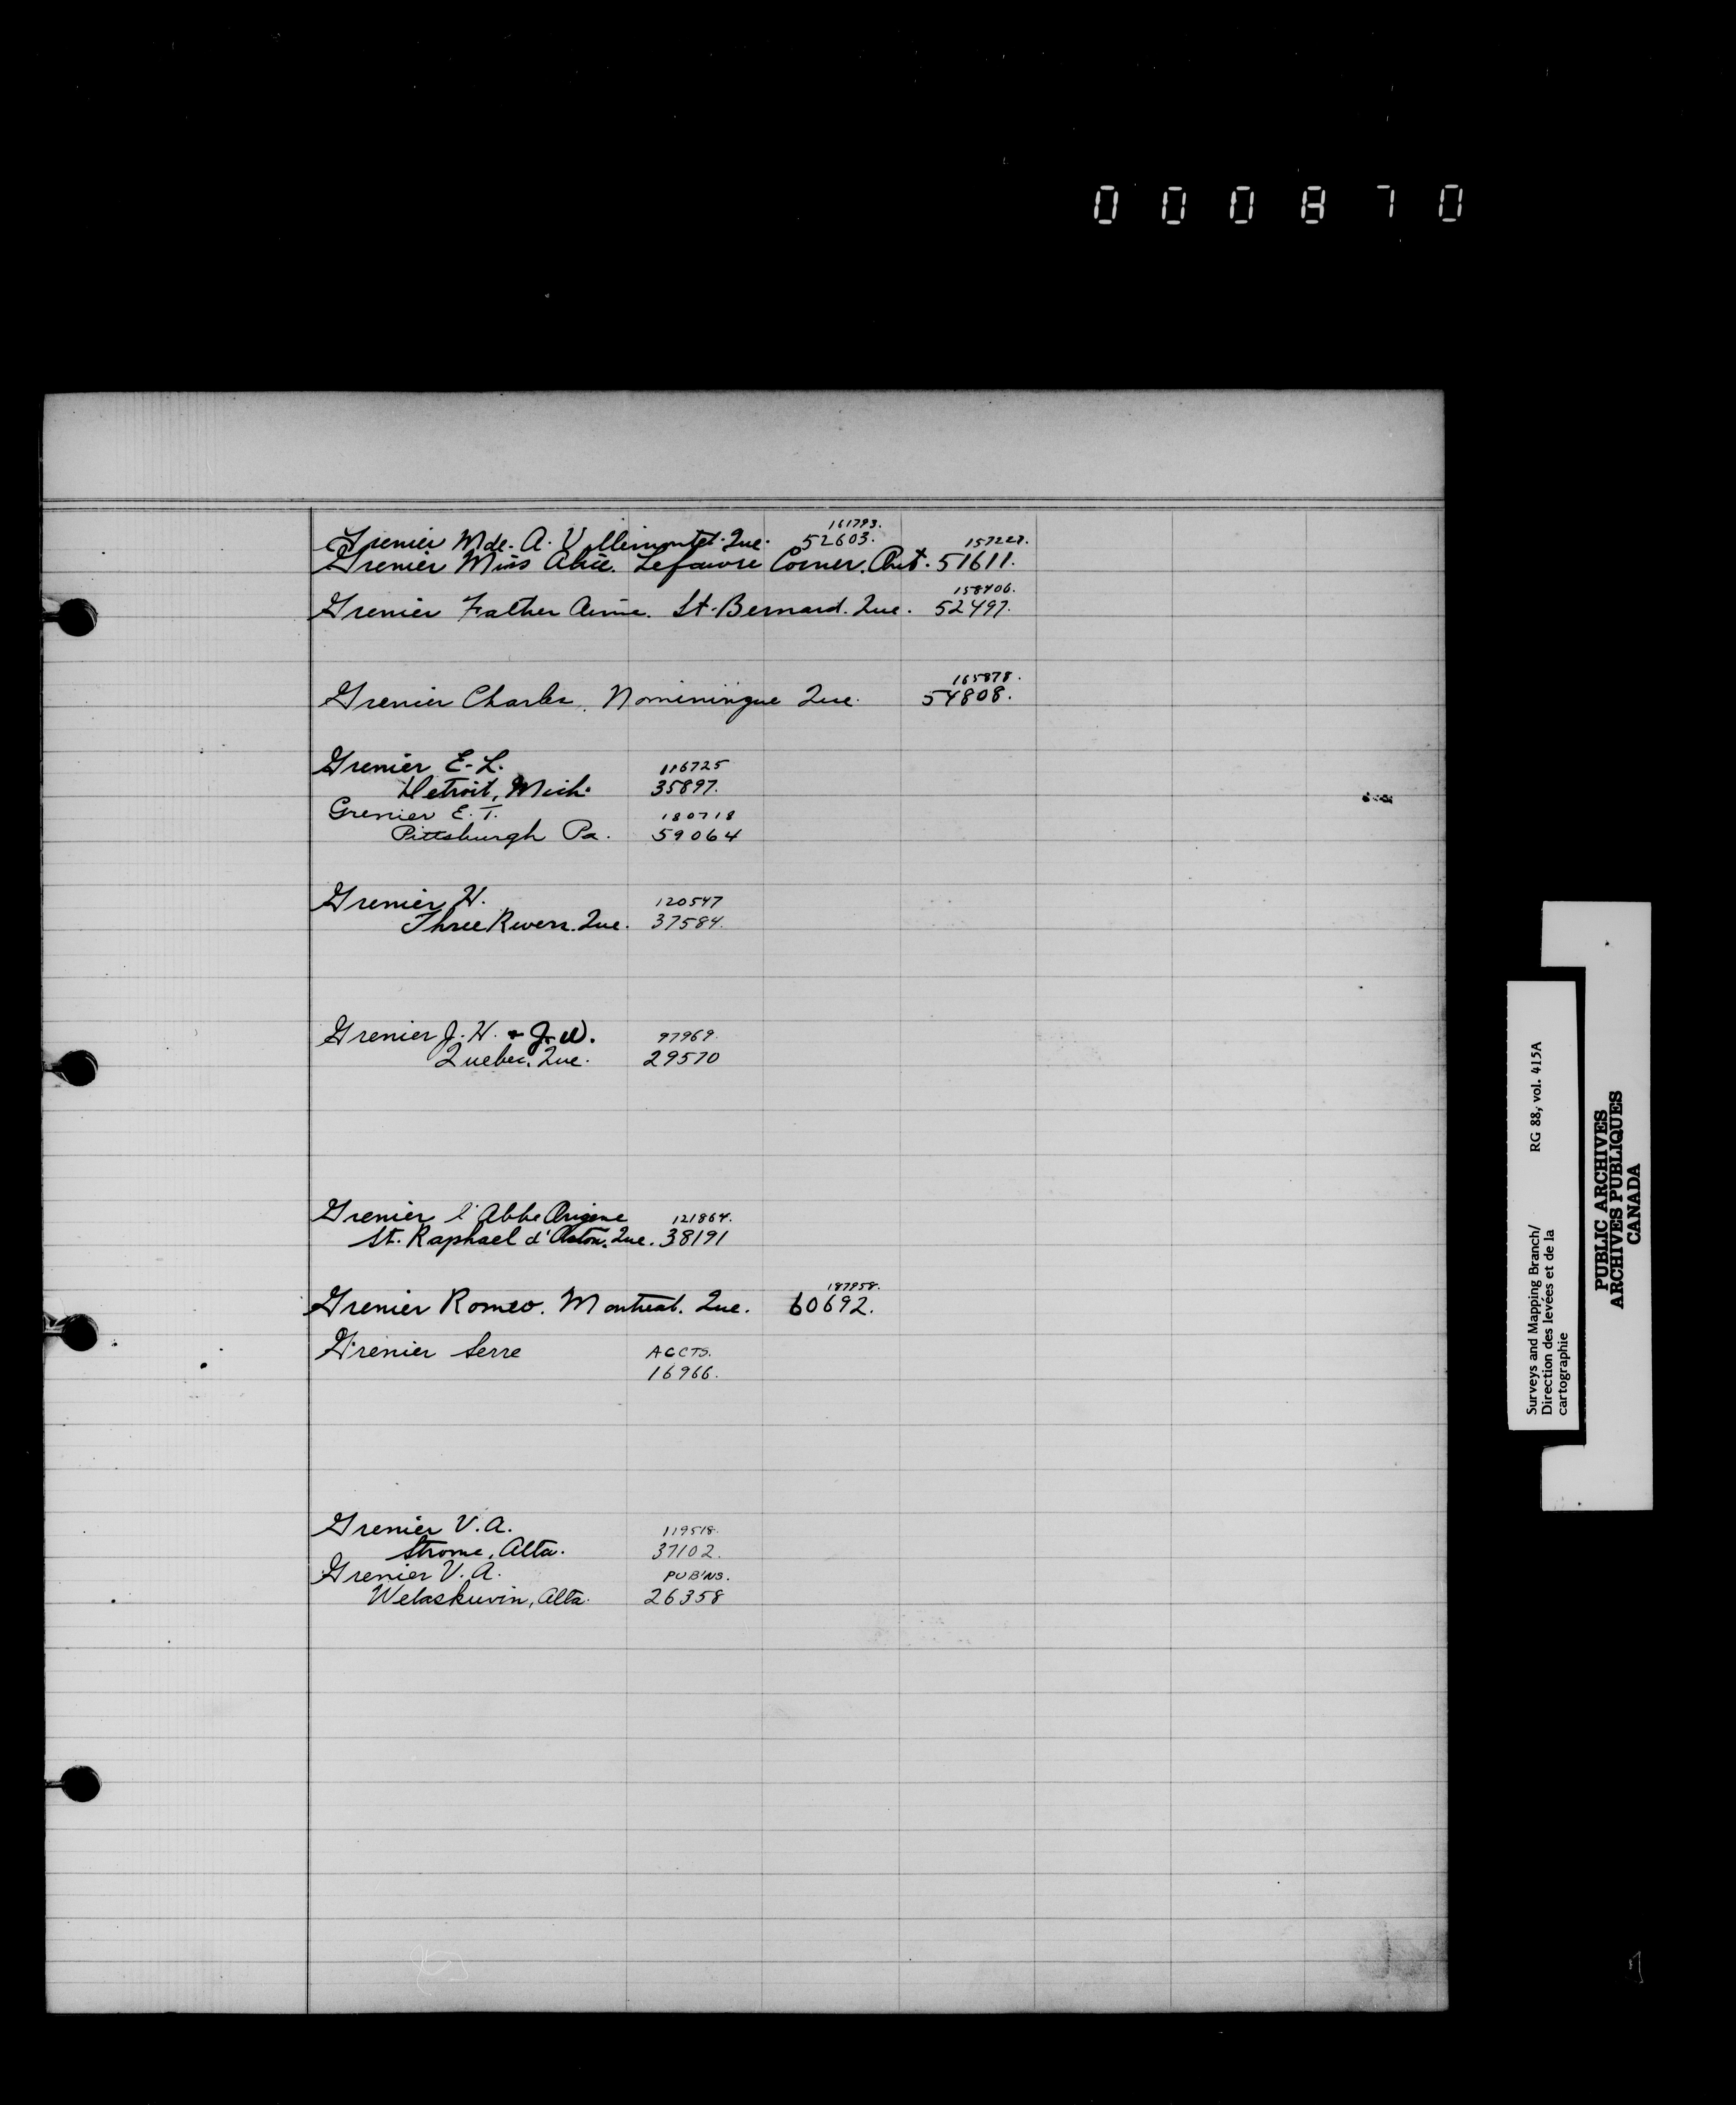 000870
Grenier Mde. A. Villemontel. Que. 161793. 52603.
Grenier Miss Alice. Lefaivre Corner. Ont. 51611.
Grenier Father Aimé. St. Bernard. Que. 158406. 52497.
Grenier Charles. Nominingue Que. 165878. 54808.
Grenier E. L. 116725
Detroit, Mich. 35897.
Grenier E. T. 180718
Pittsburgh Pa. 59064
Grenier H. 120547
Three Rivers. Que. 37584.
Grenier J. H. + J. W. 97969.
Quebec. Que. 29570
Grenier l'Abbe Origene 121864.
St. Raphael d'Aston. Que. 38191
Grenier Romeo. Montreal. Que. 187958. 60692.
Grenier Serre ACCTS.
16966.
Grenier V. A. 119518.
Strome, Alta. 37102.
Grenier V. A. PUB'NS.
Wetaskiwin, Alta. 26358
Surveys and Mapping Branch/ RG 88, vol. 415A
Direction des levées et de la
cartographie
PUBLIC ARCHIVES
ARCHIVES PUBLIQUES
CANADA